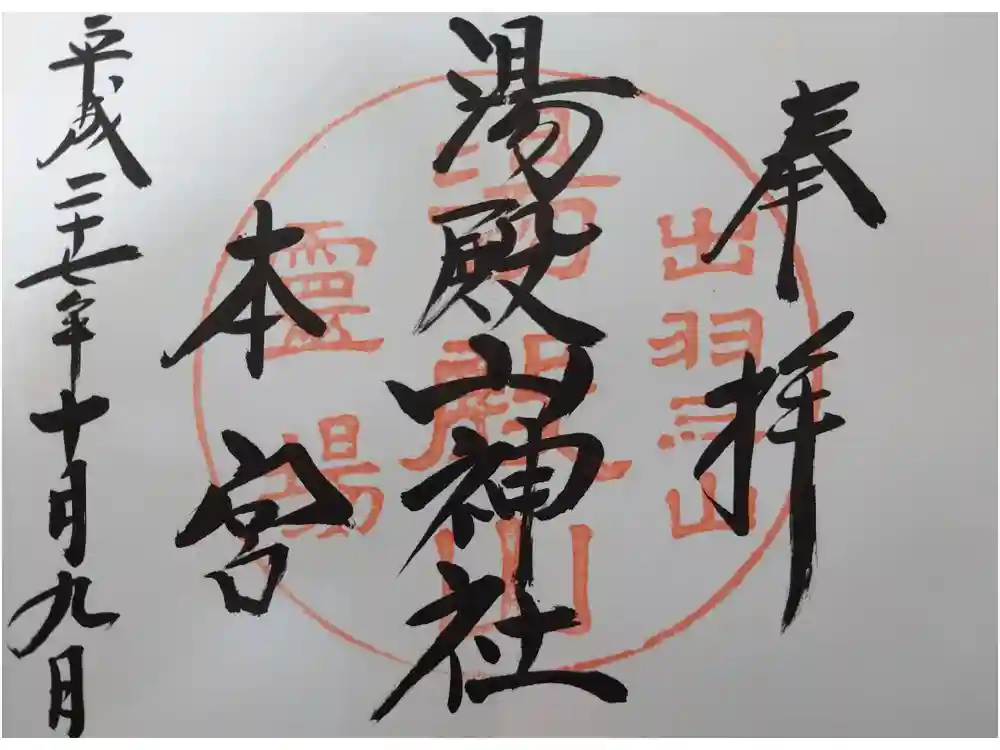 奉拝
出羽三山
湯殿山神社
湯殿山
本宮
霊場
平成二十七年十月九月